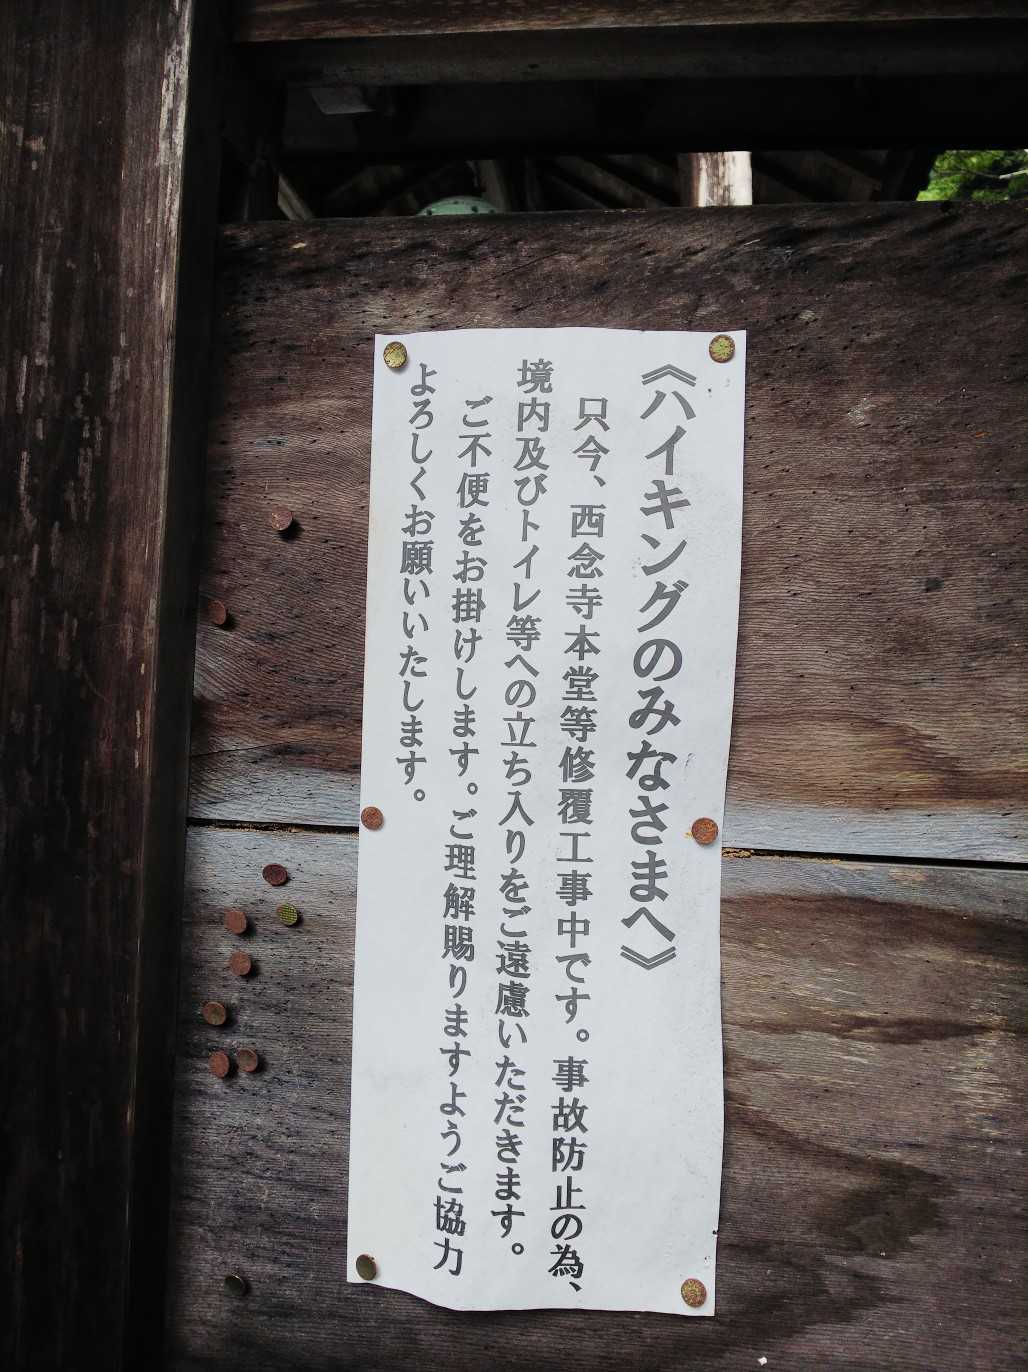 《ハイキングのみなさまへ》
只今、西念寺本堂等修覆工事中です。事故防止の為、
境内及びトイレ等への立ち入りをご遠慮いただきます。
ご不便をお掛けします。ご理解賜りますようご協力
よろしくお願いいたします。